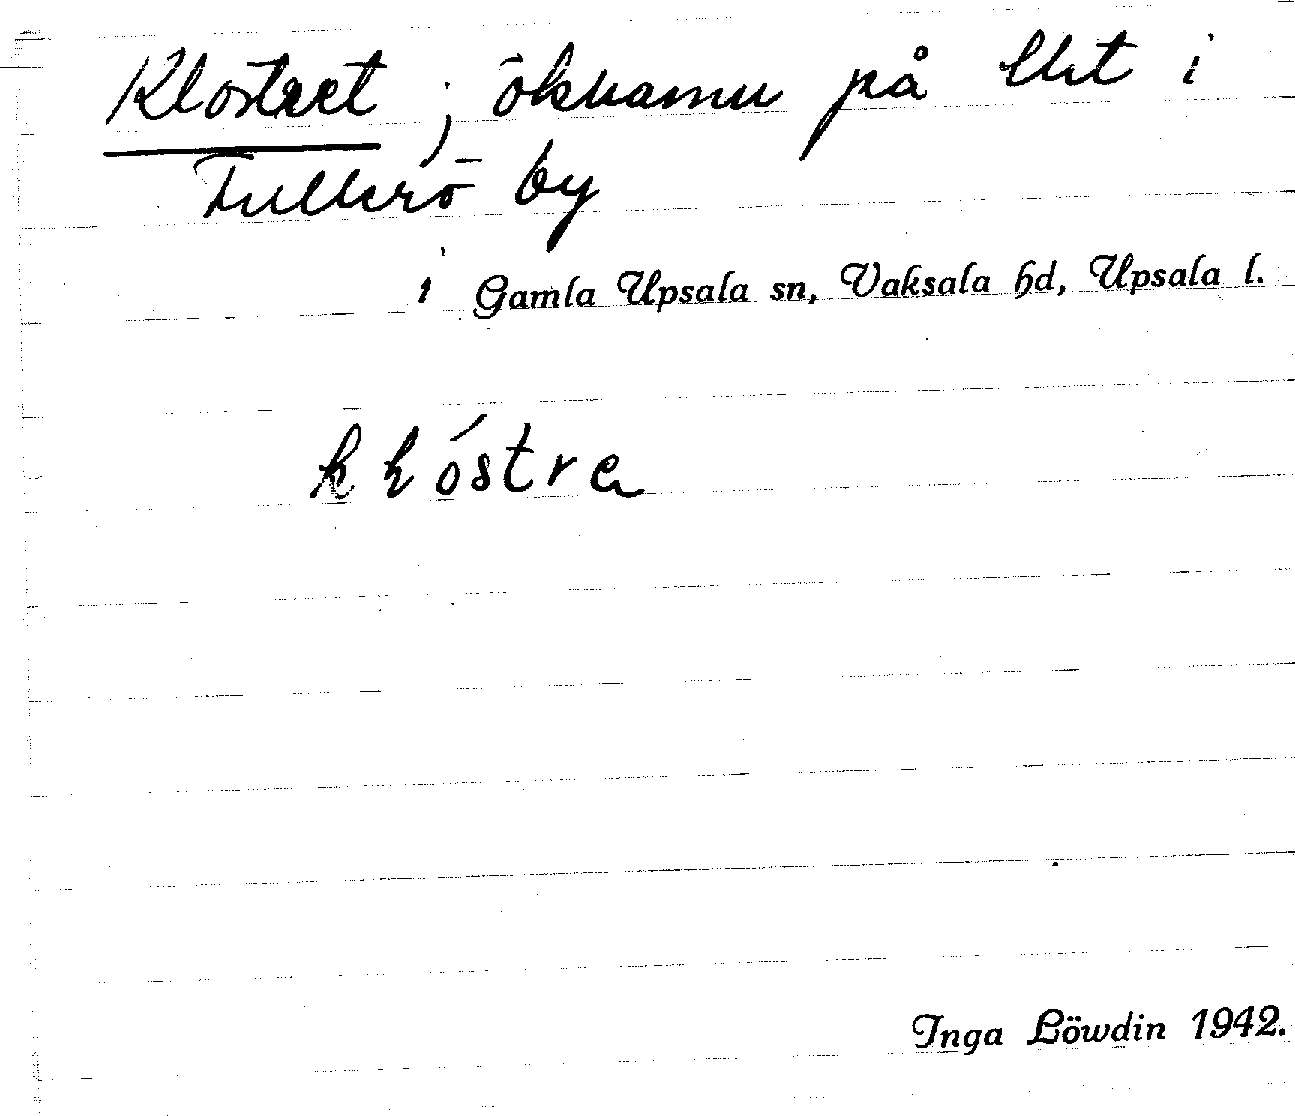 Klostret; öknamn på Ekt i
Tullerö by
i Gamla Upsala sn, Vaksala hd, Upsala l.
klóstra
Inga Löwdin 1942.